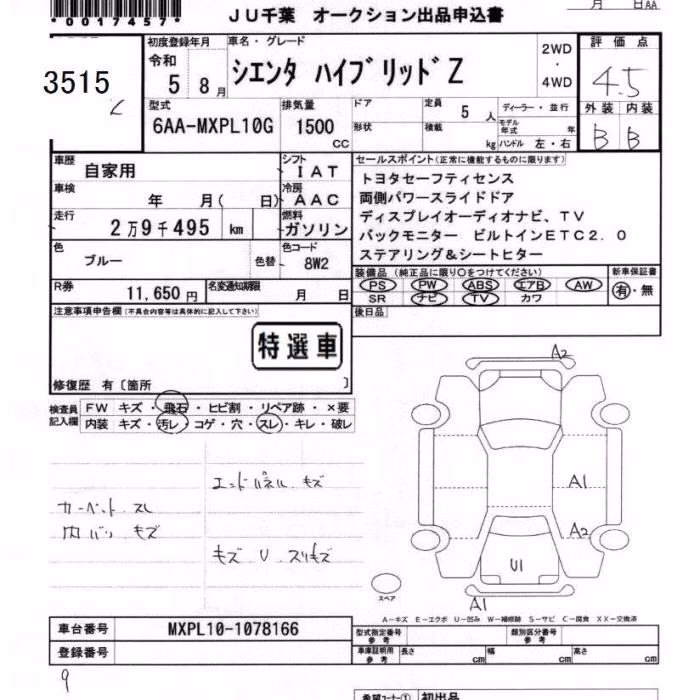 *0017457*
JU千葉 オークション出品申込書
月 日AA
3515
初度登録年月
令和
5 8月
車名・グレード
シエンタ ハイブリッドZ
2WD
・
4WD
評価点
4.5
外装 内装
B B
型式
6AA-MXPL10G
排気量
1500
cc
ドア
形状
定員
5 人
積載
kg
ディーラー・並行
モデル年式 年
ハンドル 左・右
車歴
自家用
シフト
IAT
車検
年 月( 日)
冷房
AAC
走行
2万9千495 km
燃料
ガソリン
色
ブルー
色替
色コード
8W2
R券
11,650円
名変通知期限
月 日
セールスポイント(正常に機能するものに限ります)
トヨタセーフティセンス
両側パワースライドドア
ディスプレイオーディオナビ、TV
バックモニター ビルトインETC2.0
ステアリング&シートヒター
装備品 (純正品に限り○をつけてください)
PS PW ABS エアB AW
SR ナビ TV カワ
新車保証書
有・無
後日品
注意事項申告欄(不具合内容等は具体的に記入して下さい)
特選車
修復歴 有〔箇所 〕
検査員
記入欄
FW キズ・飛石・ヒビ割・リペア跡・×要
内装 キズ・汚レ・コゲ・穴・スレ・キレ・破レ
エンドパネル キズ
カーペット スレ
内バリ キズ
キズ U スリキズ
A2
A1
A2
U1
A1
スペア
A-キズ E-エクボ U-凹み W-補修跡 S-サビ C-腐食 XX-交換済
車台番号
MXPL10-1078166
登録番号
型式指定番号
参考
類別区分番号
参考
車庫証明用
参考
長さ cm 幅 cm 高さ cm
9
希望コーナー① 初出品